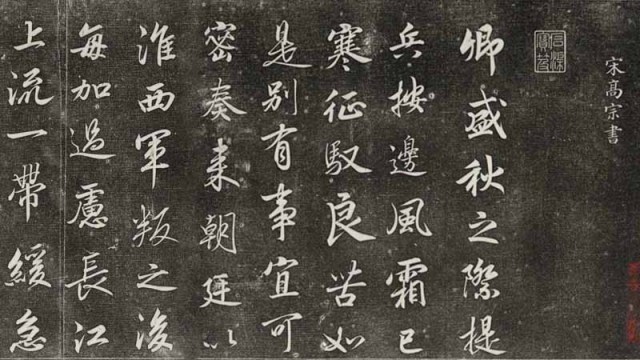 宋高宗書
卿盛秋之際提
兵按邊風霜已
寒征馭良苦如
是別有事宜可
密奏來朝廷以
淮西軍叛之後
每加過慮長江
上流一帶緩急